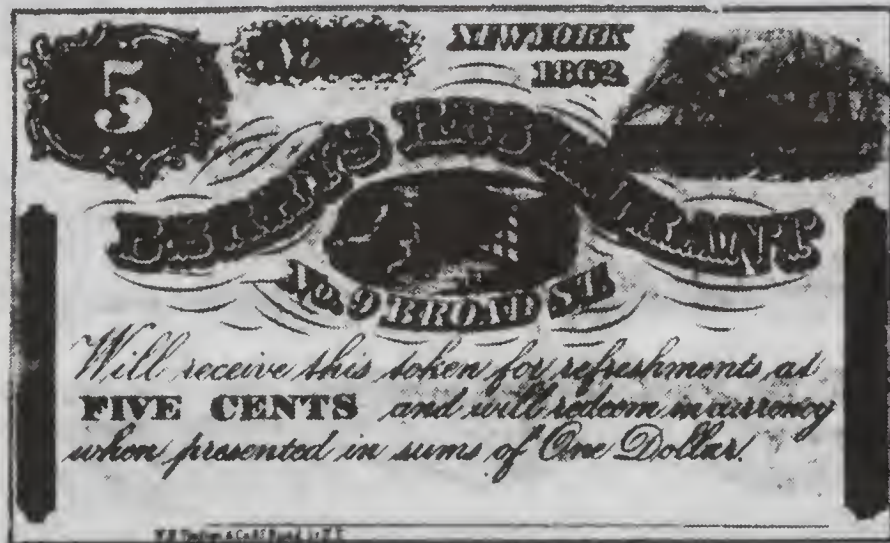 5
No
NEW YORK
1862
RESTAURANT
No. 9 BROAD ST.
Will receive this token for refreshments at
FIVE CENTS and will redeem in currency
when presented in sums of One Dollar.